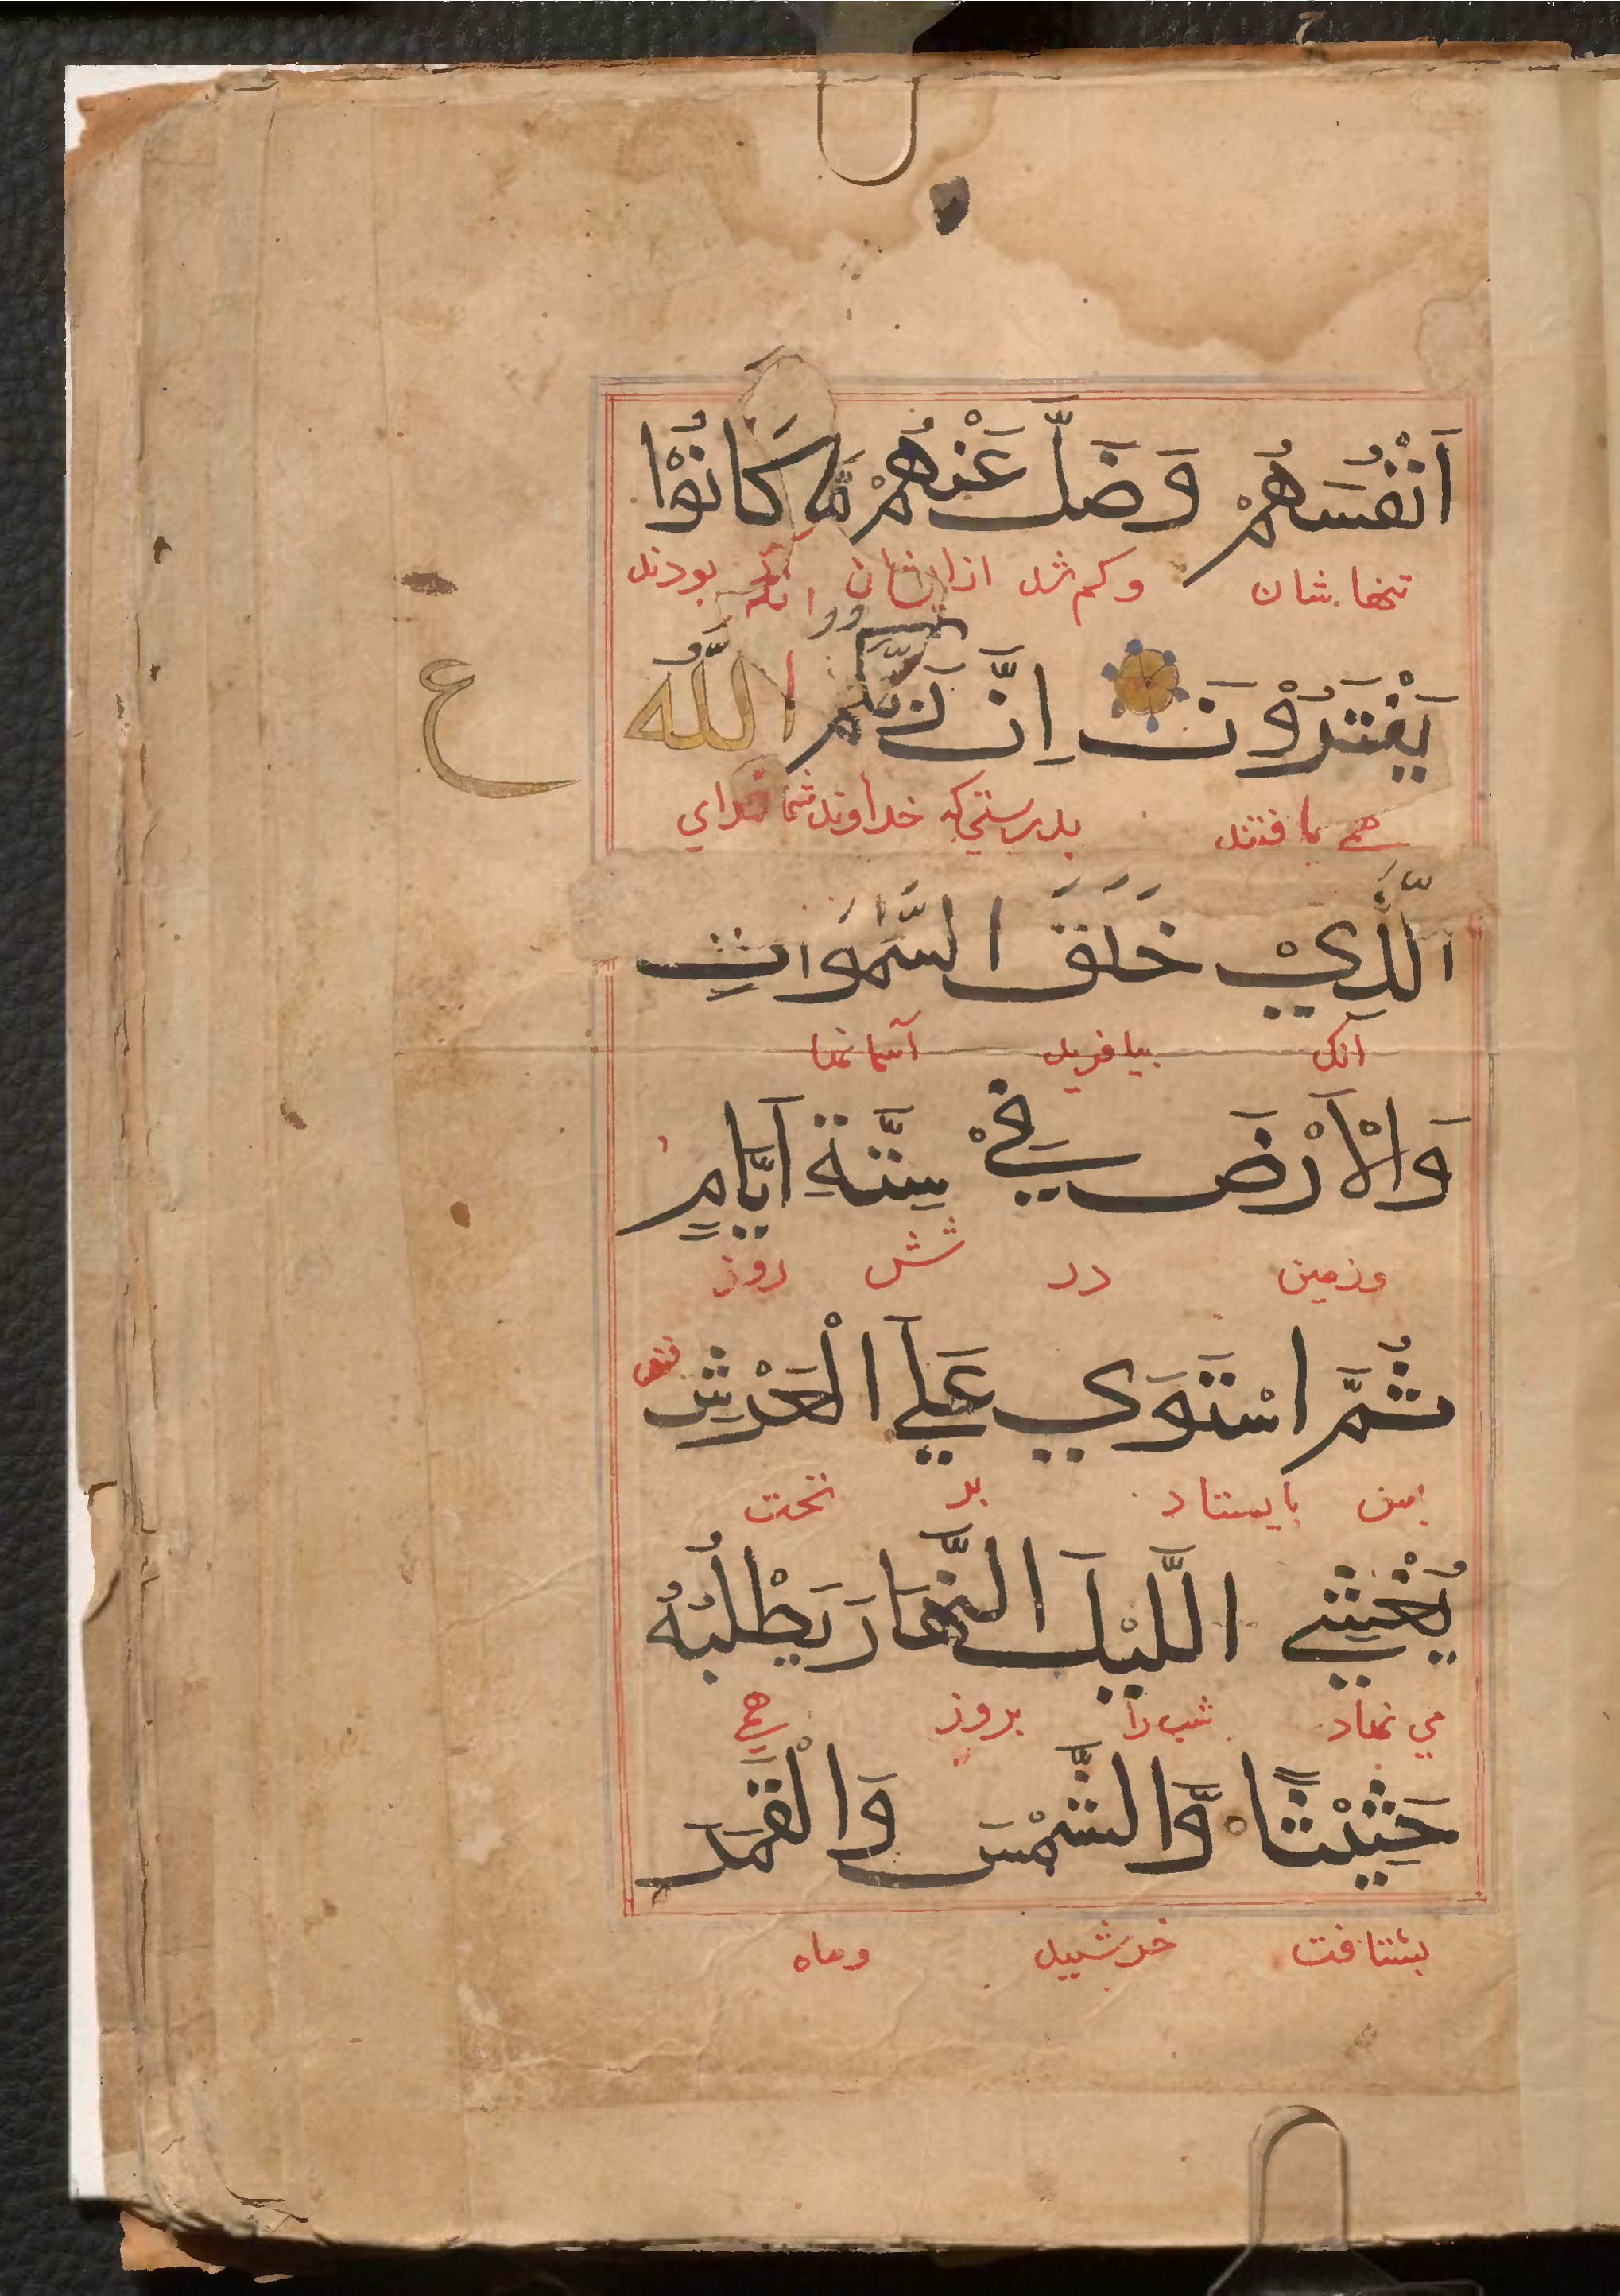 اَنْفُسَهُمْ وَضَلَّ عَنْهُمْ مَّا كَانُوْا
تنها شان وكم شد ازايشان انك بودند
يَفْتَرُوْنَ اِنَّ رَبَّكُمُ اللّٰهُ
ع
همي بافتند بدرستي كه خداوند شما خداي
الَّذِيْ خَلَقَ السَّمٰوَاتِ
آنك بيافريد آسمانها
وَالْاَرْضَ فِيْ سِتَّةِ اَيَّامٍ
وزمين در شش روز
ثُمَّ اسْتَوَي عَلَي الْعَرْشِ
پس بايستاد بر تخت
يُغْشِي اللَّيْلَ النَّهَارَ يَطْلُبُهُ
مي نهاد شب را بروز همي
حَثِيْثًا وَّالشَّمْسَ وَالْقَمَرَ
بشتافت خرشيد وماه